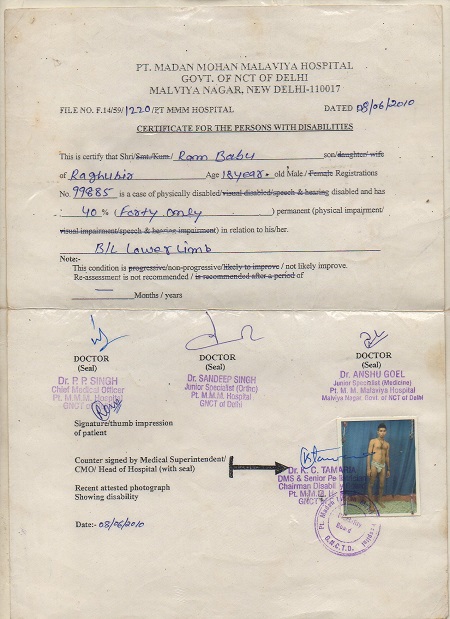 PT. MADAN MOHAN MALAVIYA HOSPITAL
GOVT. OF NCT OF DELHI
MALVIYA NAGAR, NEW DELHI-110017
FILE NO. F.14/59/1220/PT MMM HOSPITAL DATED 08/06/2010
CERTIFICATE FOR THE PERSONS WITH DISABILITIES
This is certify that Shri/Smt./Kum./ Ram Babu son/daughter/ wife
of Raghubir Age 18 year. old Male / Female Registrations
No. 99885 is a case of physically disabled/visual disabled/speech & hearing disabled and has
40 % (Forty only) permanent (physical impairment/
visual impairment/speech & hearing impairment) in relation to his/her.
B/L Lower Limb
Note:-
This condition is progressive/non-progressive/likely to improve / not likely improve.
Re-assessment is not recommended / is recommended after a period of
— Months / years
DOCTOR DOCTOR DOCTOR
(Seal) (Seal) (Seal)
Dr. P. P. SINGH
Chief Medical Officer
Pt. M.M.M. Hospital
GNCT of
Dr. SANDEEP SINGH
Junior Specialist (Ortho)
Pt. M.M.M. Hospital
GNCT of Delhi
Dr. ANSHU GOEL
Junior Specialist (Medicine)
Pt. M. M. Malaviya Hospital
Malviya Nagar, Govt. of NCT of Delhi
Signature/thumb impression
of patient
Counter signed by Medical Superintendent/
CMO/ Head of Hospital (with seal)
Dr. K. C.
DMS & Senior
Chairman
Pt. M.M.M.
GNCT
Recent attested photograph
Showing disability
Pt. Madan
Board
G.N.C.T.D.
Date:- 08/06/2010